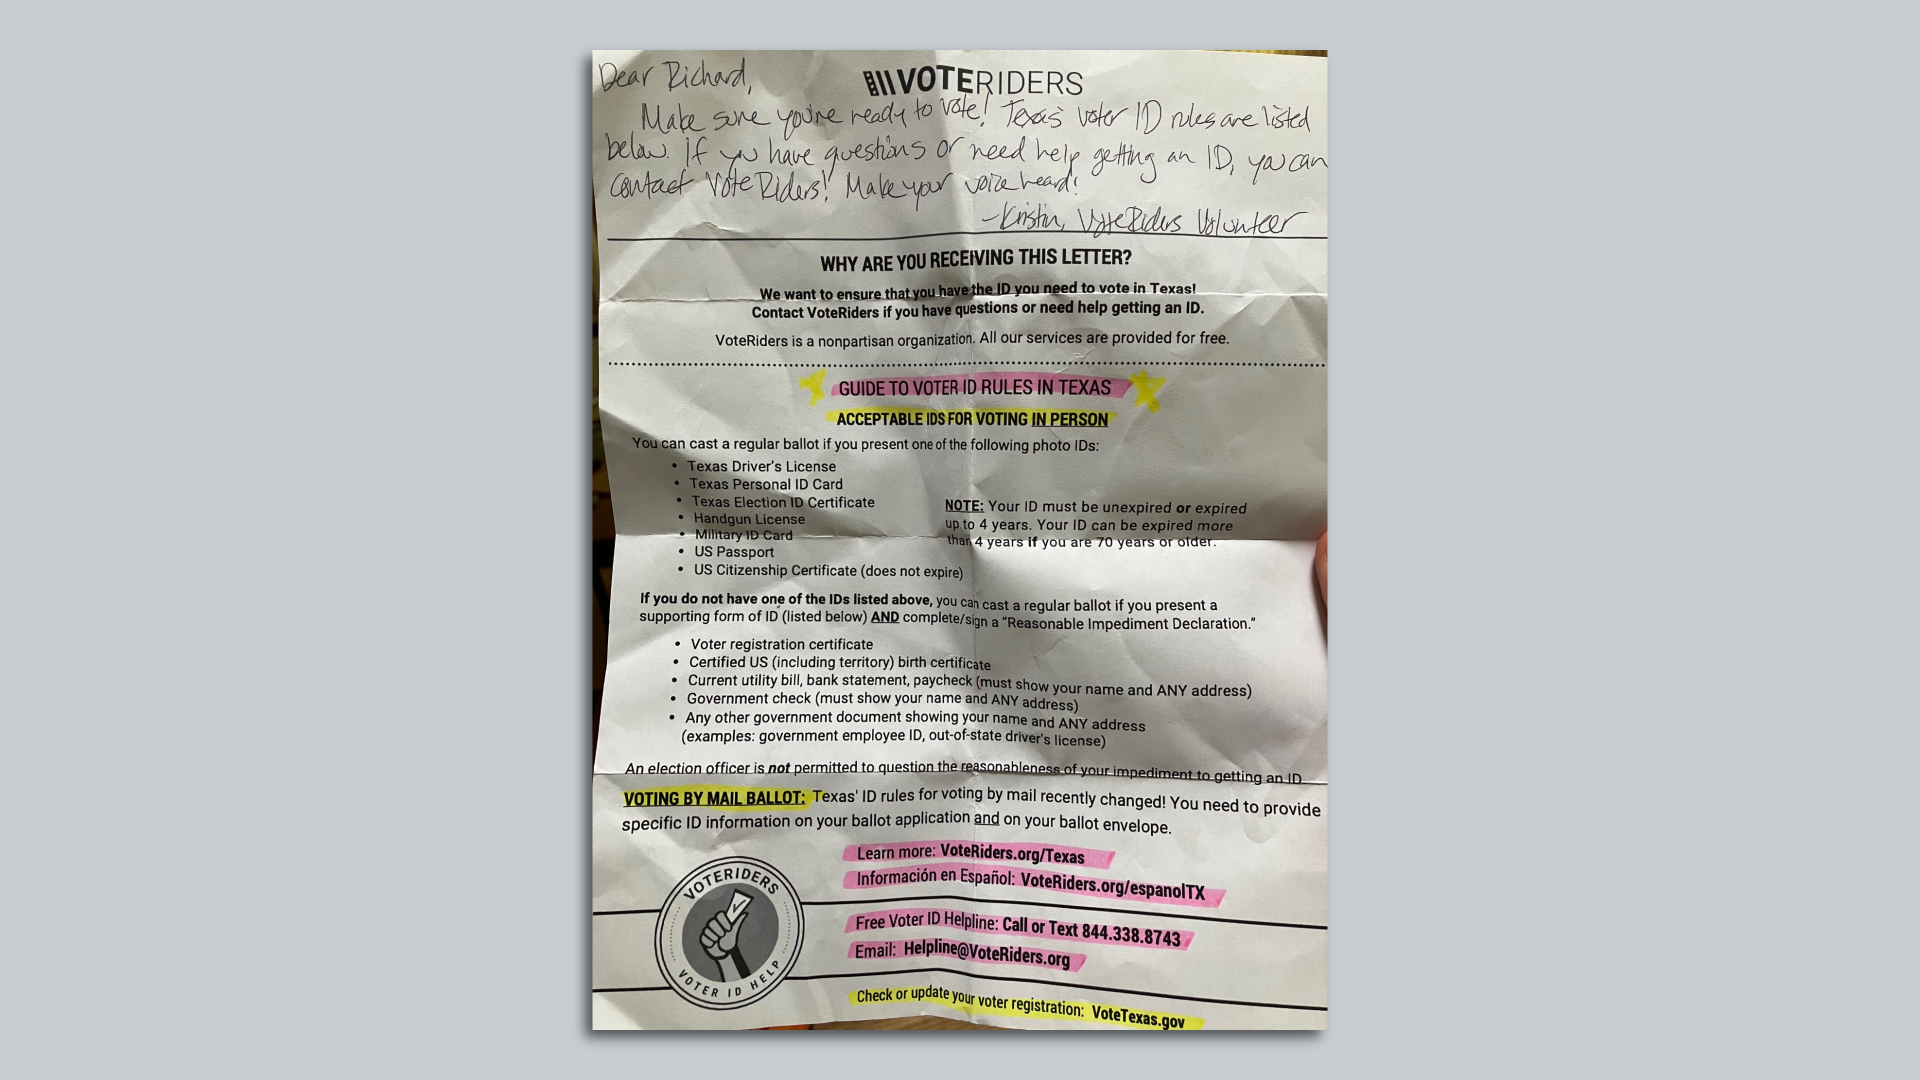 Dear Richard,
VOTERIDERS
Make sure you're ready to vote! Texas' voter ID rules are listed
below. If you have questions or need help getting an ID, you can
contact VoteRiders! Make your voice heard!
-Kristin, VoteRiders Volunteer
WHY ARE YOU RECEIVING THIS LETTER?
We want to ensure that you have the ID you need to vote in Texas!
Contact VoteRiders if you have questions or need help getting an ID.
VoteRiders is a nonpartisan organization. All our services are provided for free.
GUIDE TO VOTER ID RULES IN TEXAS
ACCEPTABLE IDS FOR VOTING IN PERSON
You can cast a regular ballot if you present one of the following photo IDs:
• Texas Driver's License
• Texas Personal ID Card
• Texas Election ID Certificate
• Handgun License
• Military ID Card
• US Passport
• US Citizenship Certificate (does not expire)
NOTE: Your ID must be unexpired or expired
up to 4 years. Your ID can be expired more
than 4 years if you are 70 years or older.
If you do not have one of the IDs listed above, you can cast a regular ballot if you present a
supporting form of ID (listed below) AND complete/sign a "Reasonable Impediment Declaration."
• Voter registration certificate
• Certified US (including territory) birth certificate
• Current utility bill, bank statement, paycheck (must show your name and ANY address)
• Government check (must show your name and ANY address)
• Any other government document showing your name and ANY address
(examples: government employee ID, out-of-state driver's license)
An election officer is not permitted to question the reasonableness of your impediment to getting an ID
VOTING BY MAIL BALLOT: Texas' ID rules for voting by mail recently changed! You need to provide
specific ID information on your ballot application and on your ballot envelope.
VOTERIDERS
VOTER ID HELP
Learn more: VoteRiders.org/Texas
Información en Español: VoteRiders.org/espanolTX
Free Voter ID Helpline: Call or Text 844.338.8743
Email: Helpline@VoteRiders.org
Check or update your voter registration: VoteTexas.gov